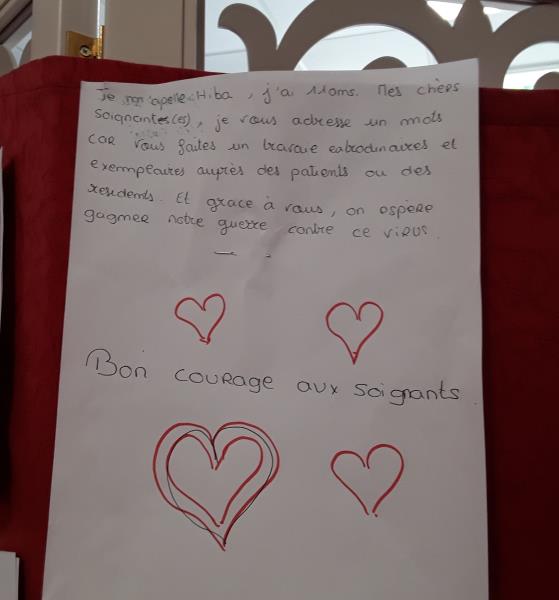 Je m'apelle Hiba, j'ai 11ans. Mes chers
soignantes(es), je vous adresse un mots
car vous faites un travaie extrodinaires et
exempleaires auprès des patients ou des
residents. Et grace à vous, on espère
gagner notre guerre contre ce virus.
Bon courage aux soignants.